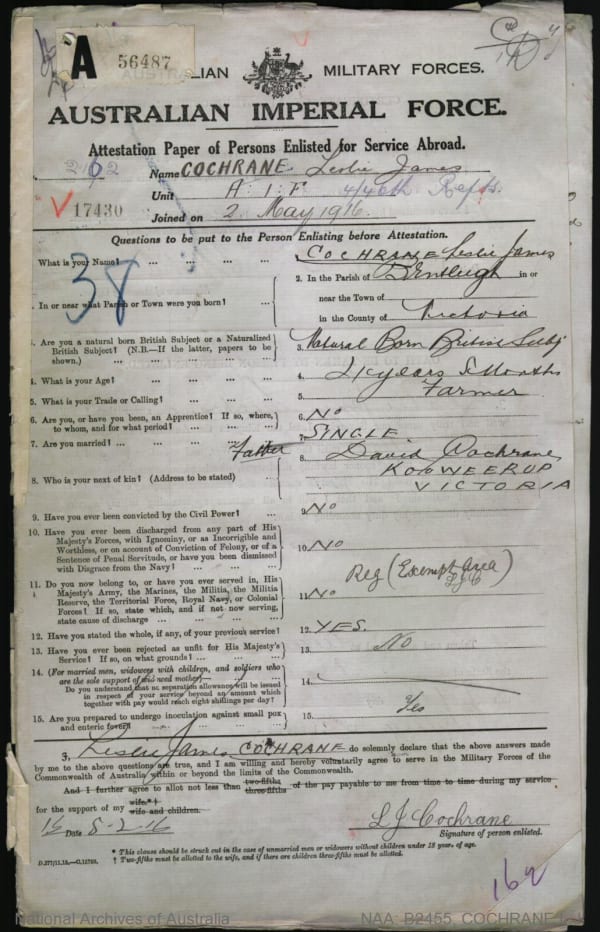 A 56487
AUSTRALIAN MILITARY FORCES.
AUSTRALIAN IMPERIAL FORCE.
Attestation Paper of Persons Enlisted for Service Abroad.
Name COCHRANE Leslie James
Unit A.I.F 4/46th Refts.
17430
Joined on 2 May 1916.
Questions to be put to the Person Enlisting before Attestation.
38
What is your Name? ... ... ... ... COCHRANE Leslie James
. In or near what Parish or Town were you born? ... 2. In the Parish of Bentleigh in or
near the Town of
in the County of Victoria
. Are you a natural born British Subject or a Naturalized British Subject? (N.B.—If the latter, papers to be shown.) ... 3. Natural Born British Subj
4. What is your Age? ... ... ... 4. 21 years 5 Months
5. What is your Trade or Calling? ... ... ... 5. Farmer
6. Are you, or have you been, an Apprentice? If so, where, to whom, and for what period? ... 6. No
7. Are you married? ... ... ... 7. SINGLE
8. Who is your next of kin? (Address to be stated) ... Father 8. David Cochrane
KOOWEERUP
VICTORIA
9. Have you ever been convicted by the Civil Power? ... 9. NO
10. Have you ever been discharged from any part of His Majesty's Forces, with Ignominy, or as Incorrigible and Worthless, or on account of Conviction of Felony, or of a Sentence of Penal Servitude, or have you been dismissed with Disgrace from the Navy? ... 10. NO
11. Do you now belong to, or have you ever served in, His Majesty's Army, the Marines, the Militia, the Militia Reserve, the Territorial Force, Royal Navy, or Colonial Forces? If so, state which, and if not now serving, state cause of discharge ... 11. No Reg (Exempt Area) LJC
12. Have you stated the whole, if any, of your previous service? 12. YES.
13. Have you ever been rejected as unfit for His Majesty's Service? If so, on what grounds? ... 13. No
14. (For married men, widowers with children, and soldiers who are the sole support of widowed mother)—
Do you understand that no separation allowance will be issued in respect of your service beyond an amount which together with pay would reach eight shillings per day? 14.
15. Are you prepared to undergo inoculation against small pox and enteric fever? 15. Yes
I, Leslie James COCHRANE do solemnly declare that the above answers made
by me to the above questions are true, and I am willing and hereby voluntarily agree to serve in the Military Forces of the
Commonwealth of Australia within or beyond the limits of the Commonwealth.
And I further agree to allot not less than two-fifths three-fifths of the pay payable to me from time to time during my service
for the support of my wife.*† wife and children.
Date 8-2-16
L J Cochrane
Signature of person enlisted.
* This clause should be struck out in the case of unmarried men or widowers without children under 18 years of age.
† Two-fifths must be allotted to the wife, and if there are children three-fifths must be allotted.
D.277/11.15.—C.12769.
National Archives of Australia
NAA: B2455, COCHRANE L J